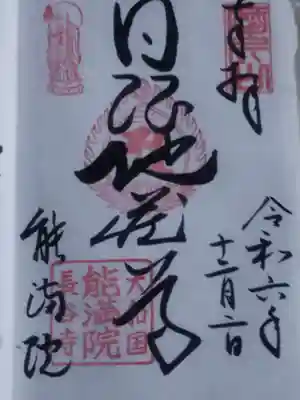 奉拝
令和六年
十二月二日
日限地蔵尊
能満院
大和国
能満院
長谷寺